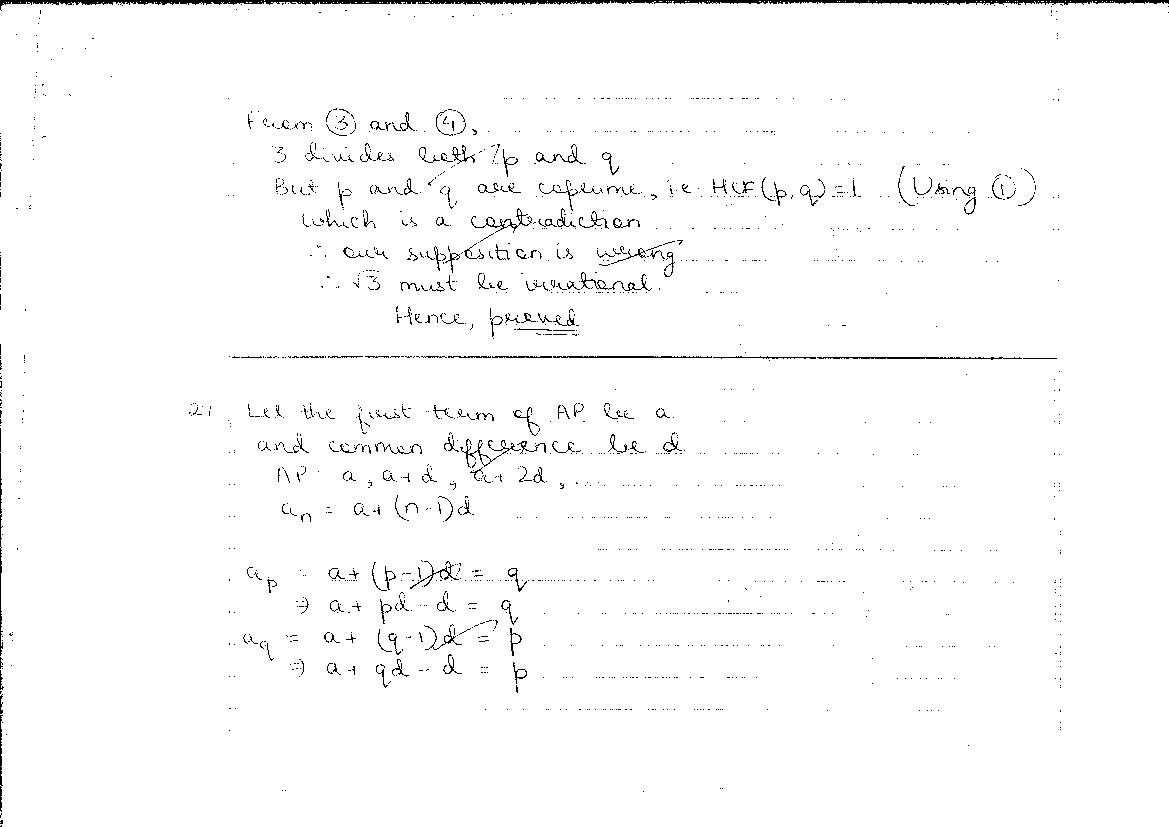 From ③ and ④,
3 divides both p and q
But p and q are coprime, i.e. HCF(p, q) = 1 (Using ①)
which is a contradiction
∴ our supposition is wrong
∴ √3 must be irrational.
Hence, proved
27. Let the first term of AP be a
and common difference be d
AP = a, a+d, a+2d, ......
aₙ = a+(n-1)d
a_p = a+(p-1)d = q
⇒ a+pd-d = q
a_q = a+(q-1)d = p
⇒ a+qd-d = p